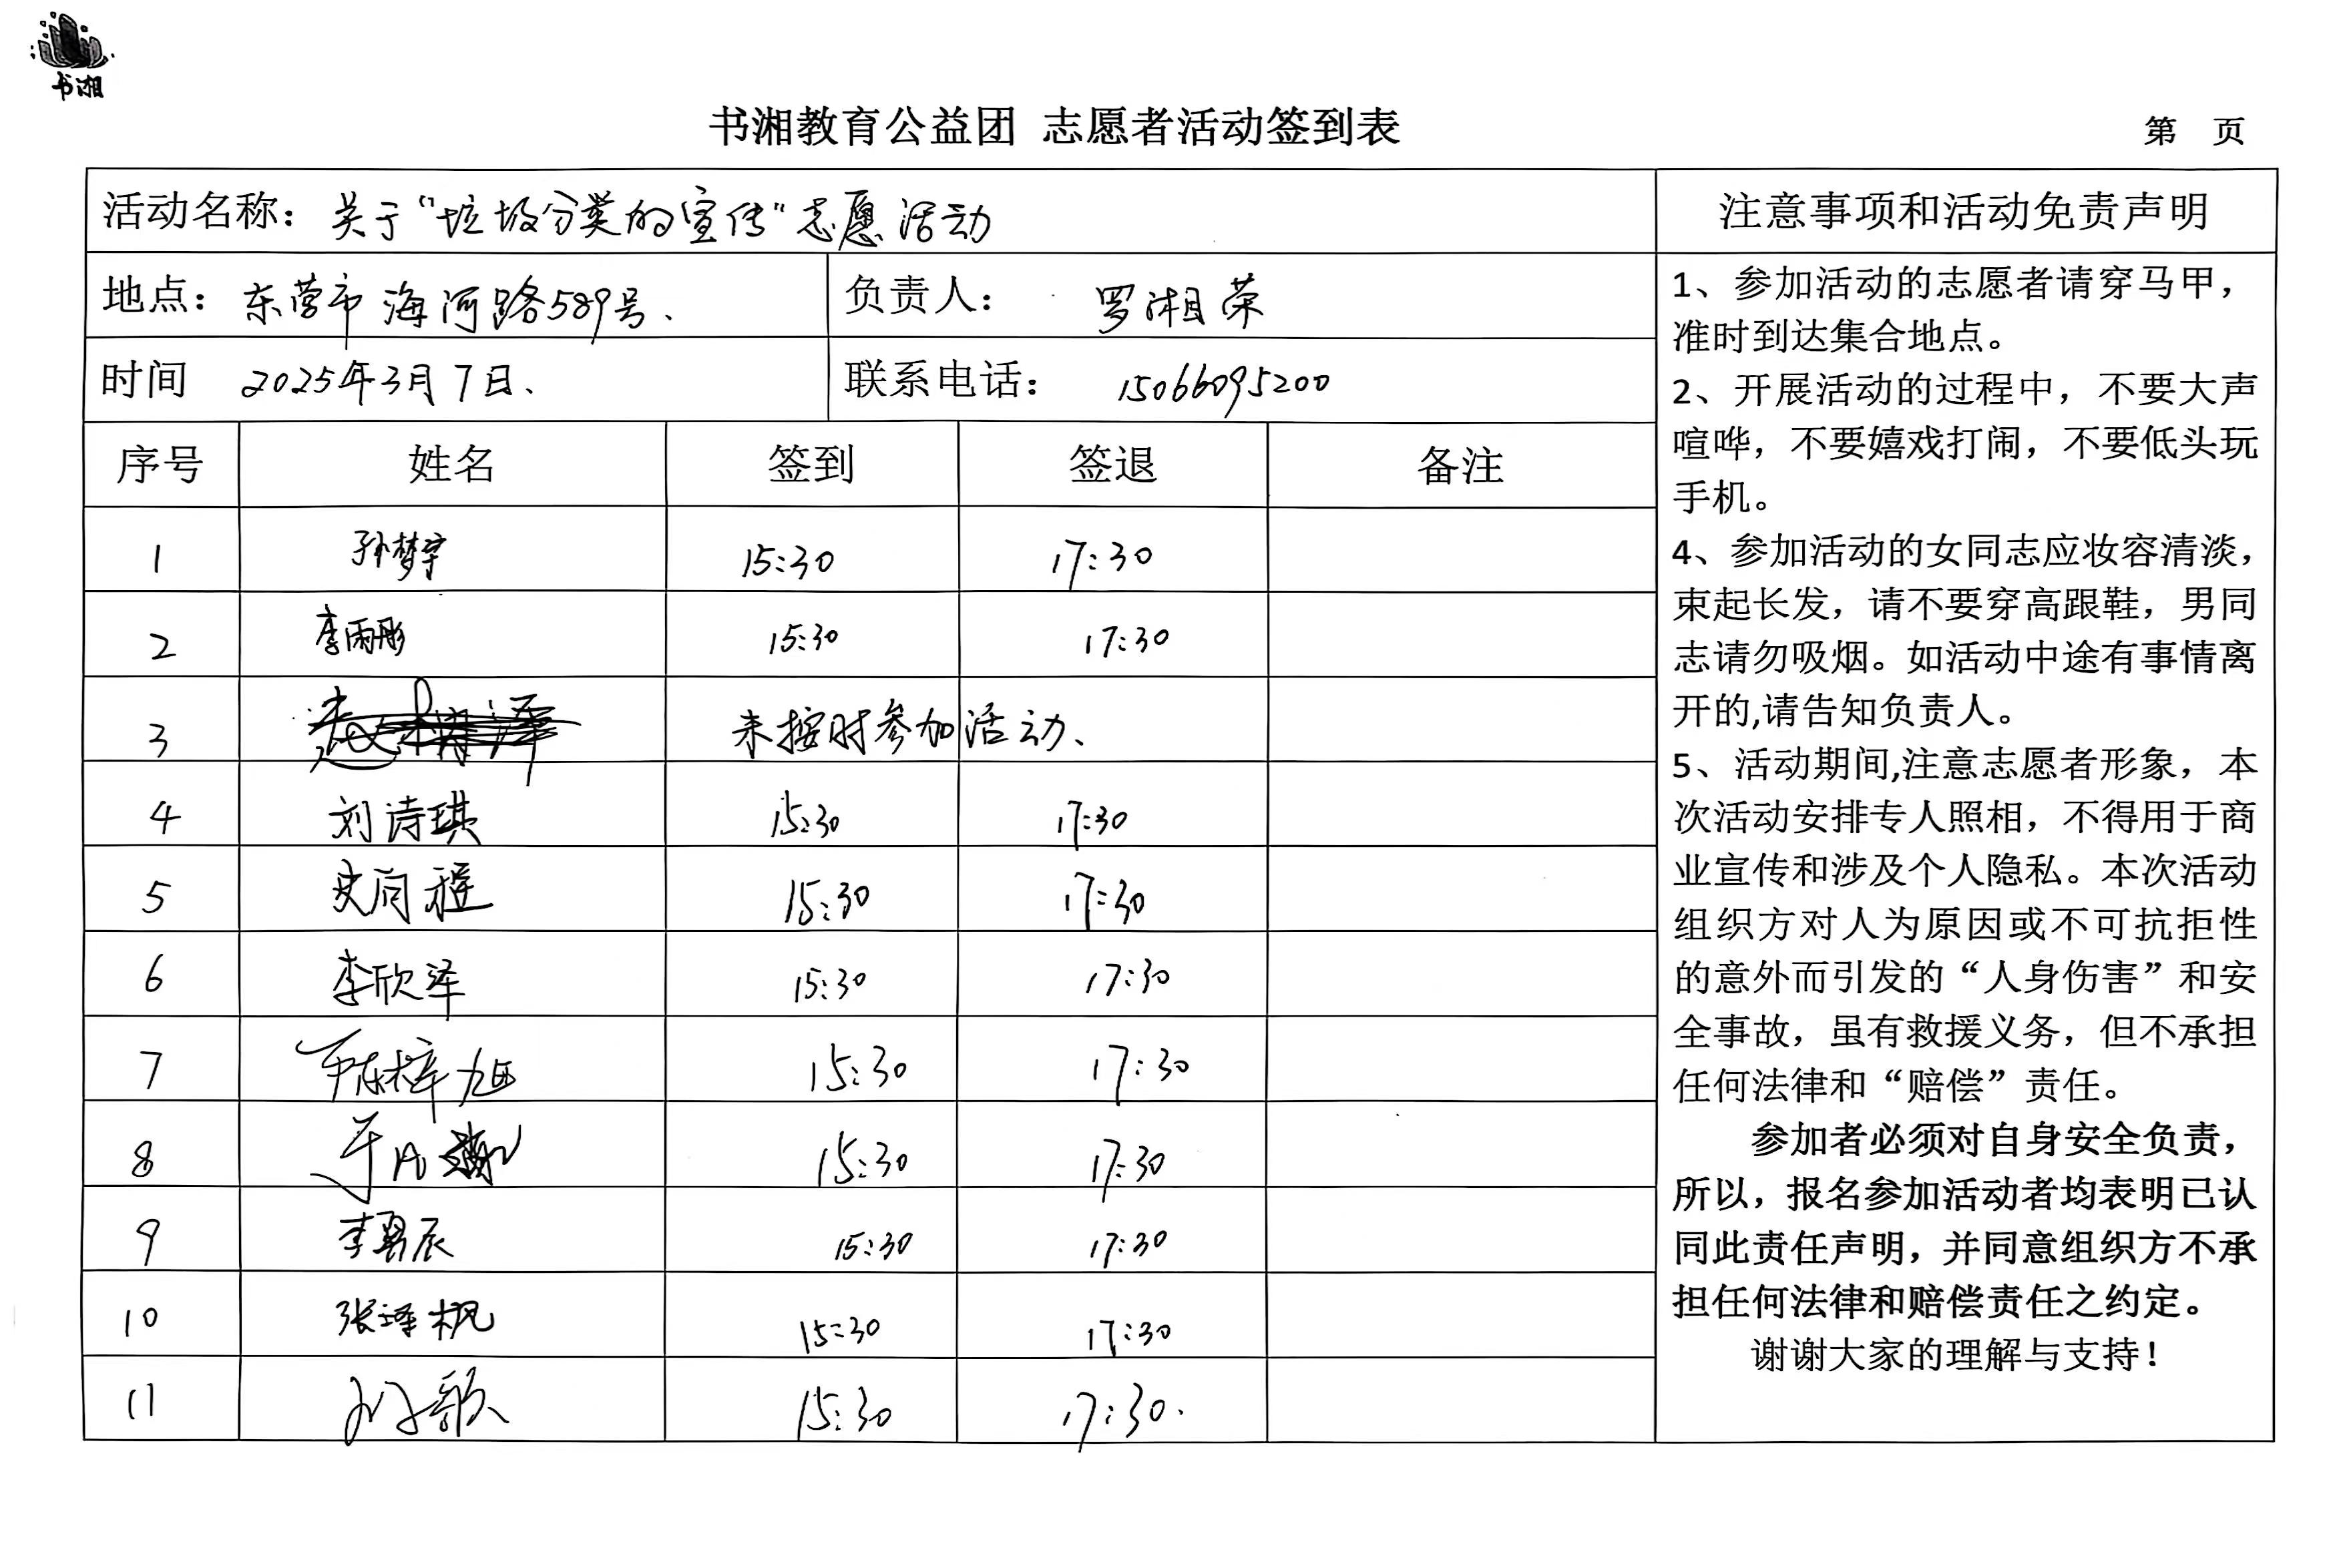 书湘
书湘教育公益团 志愿者活动签到表
第 页
活动名称：关于“垃圾分类的宣传”志愿活动
地点：东营市海河路589号、
负责人：罗湘荣
时间 2025年3月7日、
联系电话：15066095200
序号 姓名 签到 签退 备注
1 孙梦宇 15:30 17:30
2 李雨彤 15:30 17:30
3 未按时参加活动、
4 刘诗琪 15:30 17:30
5 15:30 17:30
6 李欣泽 15:30 17:30
7 15:30 17:30
8 15:30 17:30
9 李昺辰 15:30 17:30
10 张泽枫 15:30 17:30
11 15:30 17:30.
注意事项和活动免责声明
1、参加活动的志愿者请穿马甲，
准时到达集合地点。
2、开展活动的过程中，不要大声
喧哗，不要嬉戏打闹，不要低头玩
手机。
4、参加活动的女同志应妆容清淡，
束起长发，请不要穿高跟鞋，男同
志请勿吸烟。如活动中途有事情离
开的,请告知负责人。
5、活动期间,注意志愿者形象，本
次活动安排专人照相，不得用于商
业宣传和涉及个人隐私。本次活动
组织方对人为原因或不可抗拒性
的意外而引发的“人身伤害”和安
全事故，虽有救援义务，但不承担
任何法律和“赔偿”责任。
参加者必须对自身安全负责，
所以，报名参加活动者均表明已认
同此责任声明，并同意组织方不承
担任何法律和赔偿责任之约定。
谢谢大家的理解与支持！